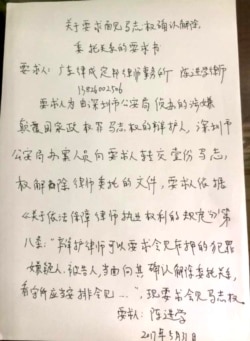 关于要求面见马志权确认解除
委托关系的要求书
要求人：广东律成定邦律师事务所 陈进学律师
13826002506
要求人为由深圳市公安局侦办的涉嫌
颠覆国家政权马志权的辩护人，深圳市
公安局办案人员向要求人转交壹份马志
权解除律师委托的文件，要求人依据
《关于依法保障律师执业权利的规定》第
八条："辩护律师可以要求会见在押的犯罪
嫌疑人、被告人，当面向其确认解除委托关系，
看守所应当安排会见…"，现要求会见马志权
要求人：陈进学
2017年5月31日